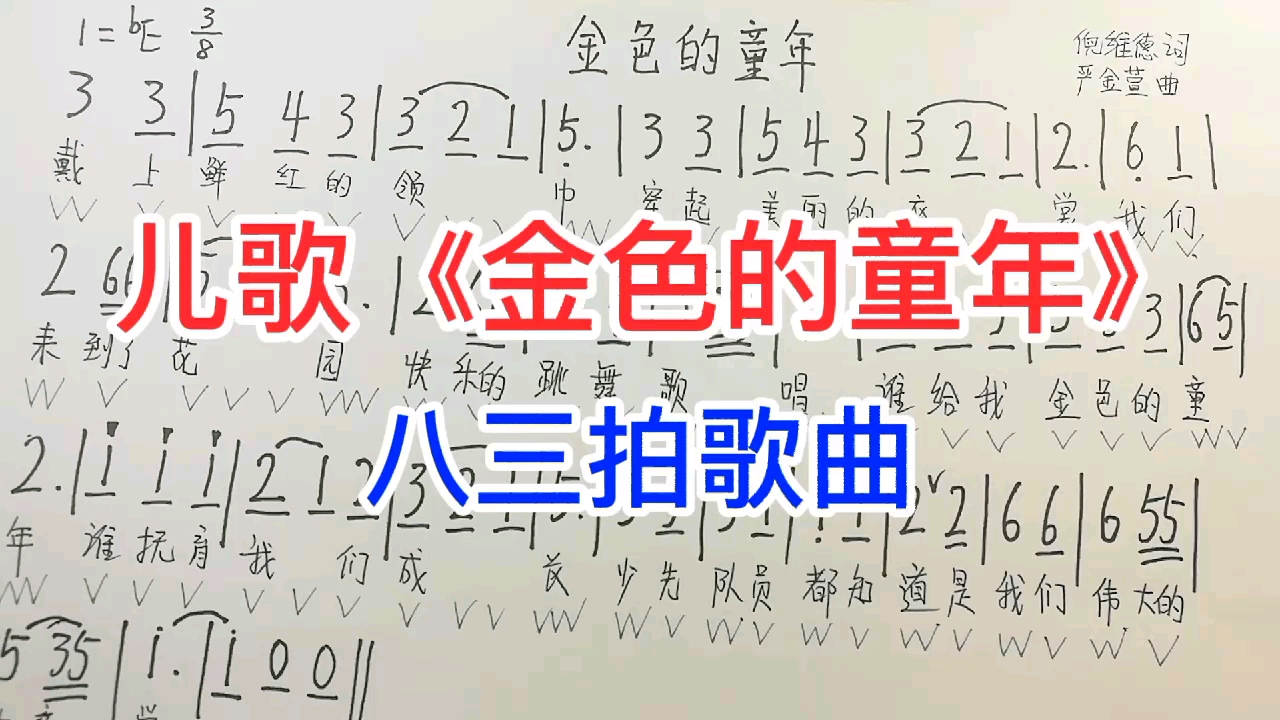 1=bE 3/8
金色的童年
倪维德词
严金萱曲
3 3 | 5 4 3 | 3 2 1 | 5. | 3 3 | 5 4 3 | 3 2 1 | 2. | 6 1 |
戴上鲜红的领巾 穿起美丽的衣裳 我们
儿歌《金色的童年》
2 66
来到了花园 快乐的跳舞歌唱 谁给我金色的童
3 | 6 5 |
八三拍歌曲
2. | i i i | 2 1 2 | 3
2 2 | 6 6 | 6 55 |
年 谁抚育我们成长 少先队员都知道是我们伟大的
5 35 | i. | i 0 0 ||